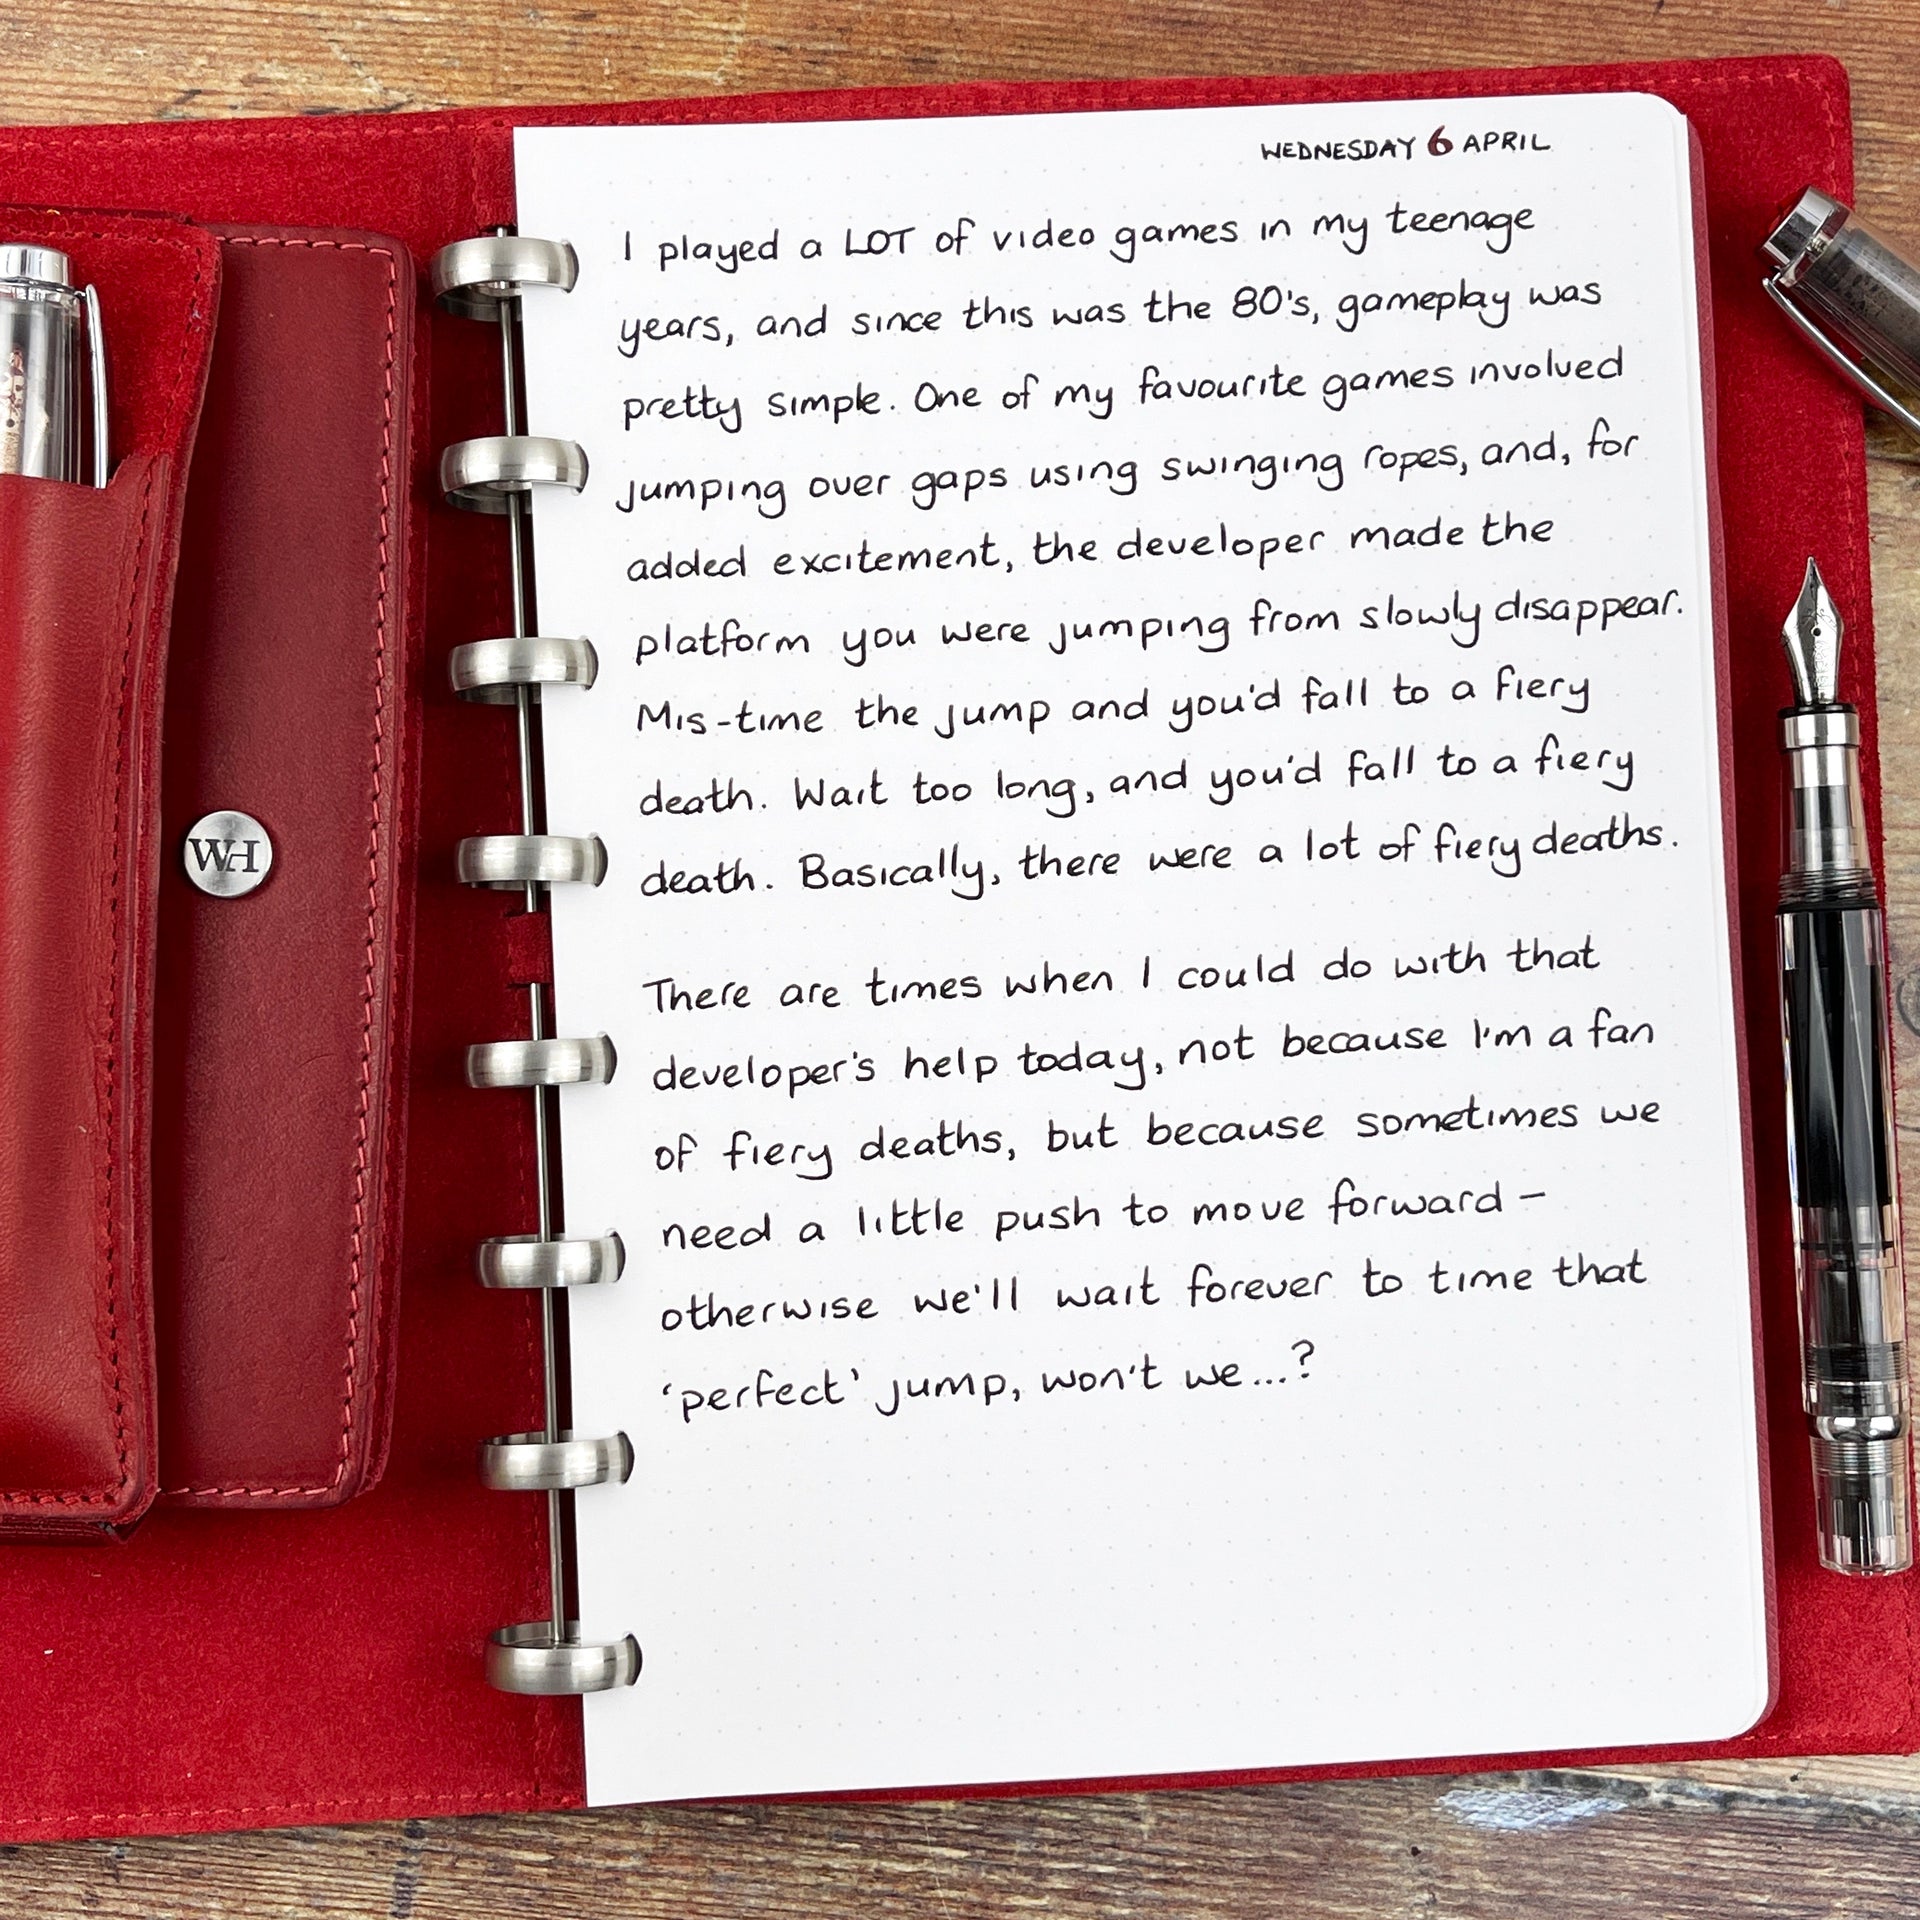 WEDNESDAY 6 APRIL
I played a LOT of video games in my teenage
years, and since this was the 80's, gameplay was
pretty simple. One of my favourite games involved
jumping over gaps using swinging ropes, and, for
added excitement, the developer made the
platform you were jumping from slowly disappear.
Mis-time the jump and you'd fall to a fiery
death. Wait too long, and you'd fall to a fiery
death. Basically, there were a lot of fiery deaths.
There are times when I could do with that
developer's help today, not because I'm a fan
of fiery deaths, but because sometimes we
need a little push to move forward –
otherwise we'll wait forever to time that
'perfect' jump, won't we...?
WH